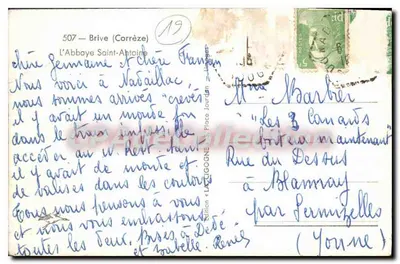 19
507 - Brive (Corrèze)
L'Abbaye Saint-Antoine
Chère Germaine et chère Françon
Nous voici à Nadaillac,
nous sommes arrivés "crevés"
il y avait un monde fou
dans le train, impossible
accéder au W. Rest. tant
il y avait de monde et
de valises dans les couloirs
Tous nous pensons à vous
et vous embrassons
toutes les deux. Bises à Dédé
et Isabelle. Renée
Place Jourdan
Mme Barbier
"Les 3 Canards
maintenant
Rue du Dessus
à Blannay
par Sermizelles
(Yonne)